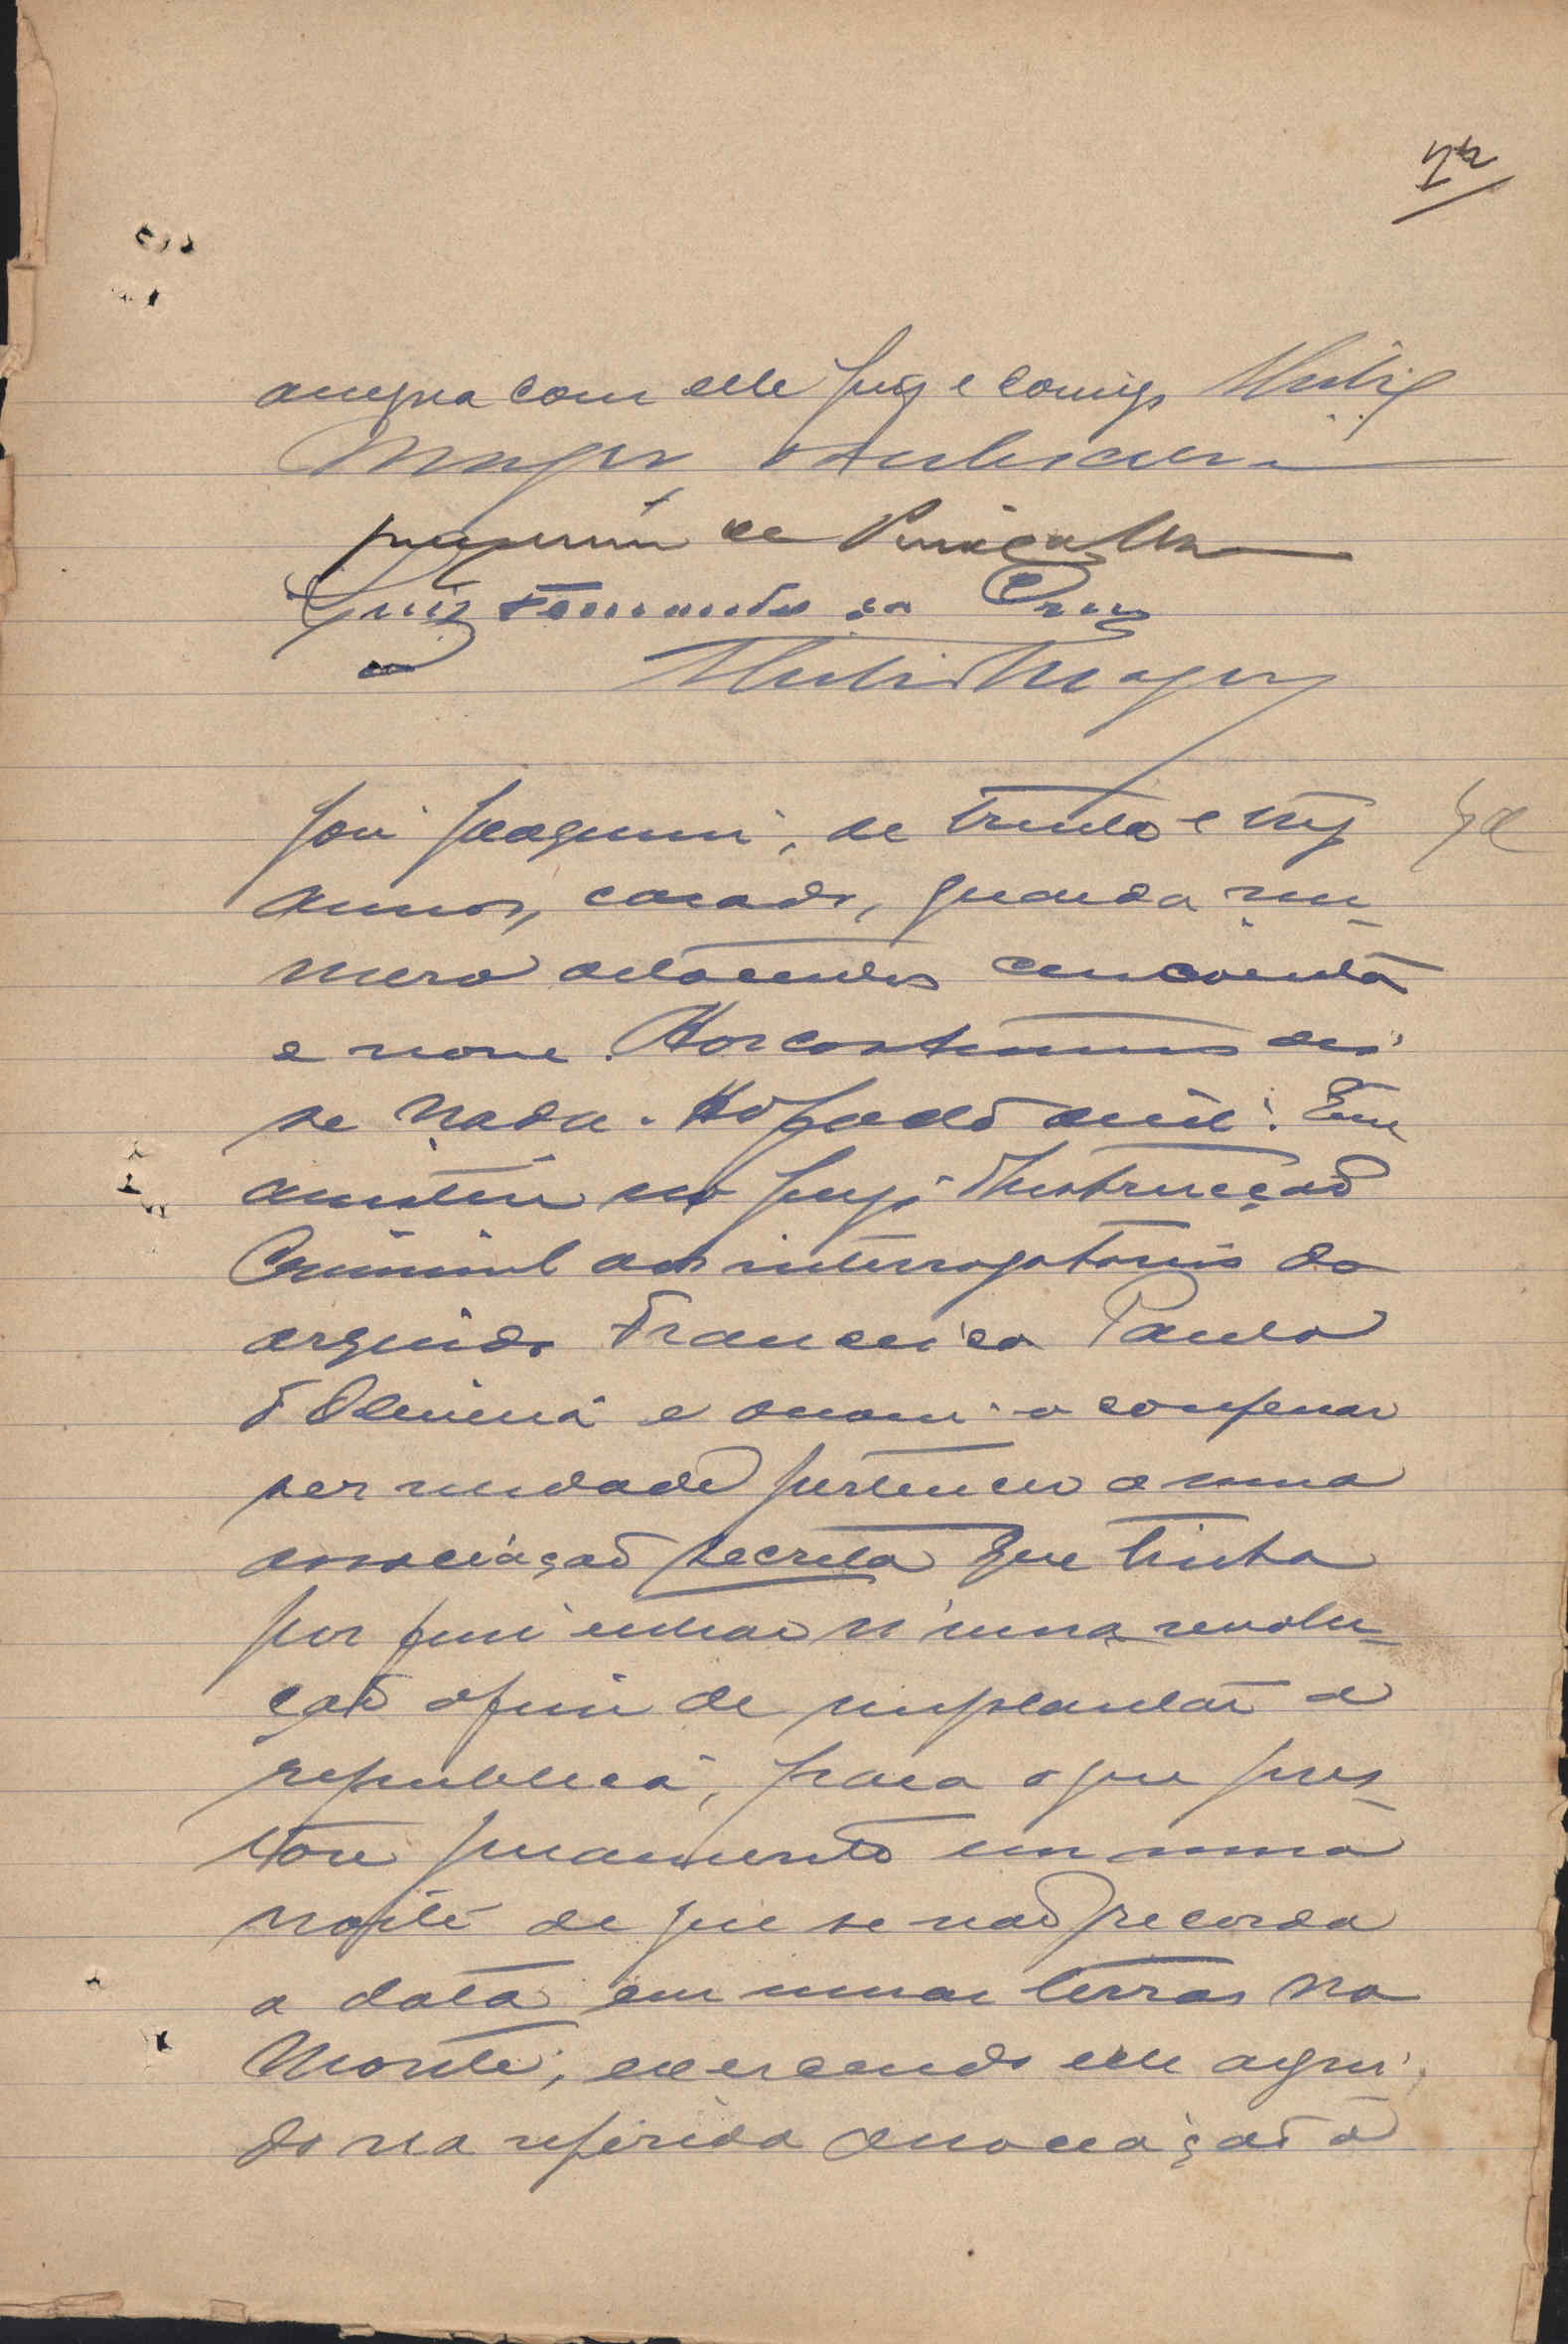 assigna com elle juiz e comigo
Luiz Fernandes da Cruz
José Joaquim, de trinta e tres
annos, casado, guarda nu-
mero oitocentos cincoenta
e nove. Aos costumes dis-
se nada. Do facto disse: Que
assistiu no Juizo Instrucção
Criminal aos interrogatorios do
arguido Francisco Paulo
d'Oliveira e ouviu-o confessar
ser verdade pertencer a uma
associação secreta que tinha
por fim entrar n'uma revolu-
ção afim de implantar a
republica, para o que pres-
tou juramento em uma
noite de que se não recorda
a data em umas terras no
Monte, exercendo elle argui-
do na referida associação o